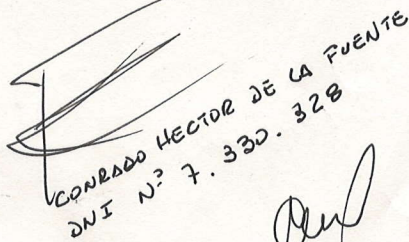 CONRADO HECTOR DE LA FUENTE
DNI Nº 7.330.328